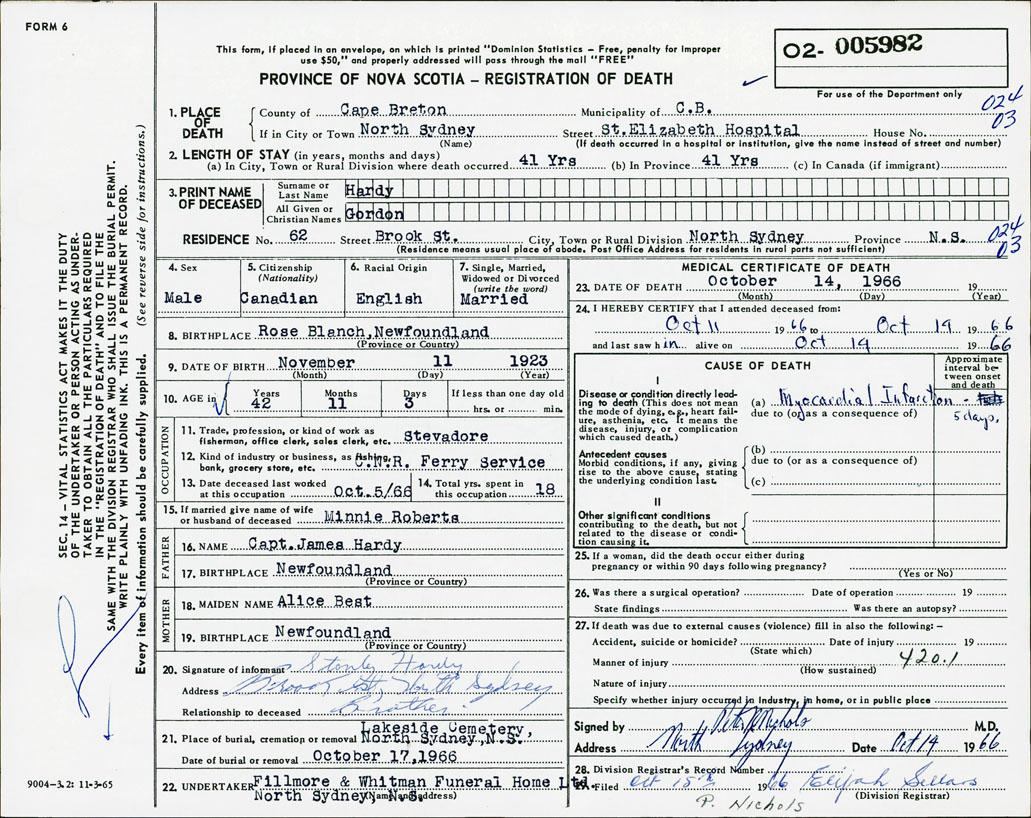 FORM 6
This form, if placed in an envelope, on which is printed "Dominion Statistics – Free, penalty for improper
use $50," and properly addressed will pass through the mail "FREE"
PROVINCE OF NOVA SCOTIA – REGISTRATION OF DEATH
02- 005982
For use of the Department only
024
03
1. PLACE OF DEATH
County of Cape Breton Municipality of C.B.
If in City or Town North Sydney Street St.Elizabeth Hospital House No.
(Name) (If death occurred in a hospital or institution, give the name instead of street and number)
2. LENGTH OF STAY (in years, months and days)
(a) In City, Town or Rural Division where death occurred 41 Yrs (b) In Province 41 Yrs (c) In Canada (if immigrant)
3. PRINT NAME OF DECEASED
Surname or Last Name Hardy
All Given or Christian Names Gordon
RESIDENCE No. 62 Street Brook St. City, Town or Rural Division North Sydney Province N.S.
024
03
(Residence means usual place of abode. Post Office Address for residents in rural parts not sufficient)
4. Sex
Male
5. Citizenship
(Nationality)
Canadian
6. Racial Origin
English
7. Single, Married,
Widowed or Divorced
(write the word)
Married
8. BIRTHPLACE Rose Blanch,Newfoundland
(Province or Country)
9. DATE OF BIRTH November 11 1923
(Month) (Day) (Year)
10. AGE in
Years Months Days If less than one day old
42 11 3 hrs. or min.
OCCUPATION
11. Trade, profession, or kind of work as
fisherman, office clerk, sales clerk, etc. Stevadore
12. Kind of industry or business, as fishing,
bank, grocery store, etc. C.N.R. Ferry Service
13. Date deceased last worked
at this occupation Oct.5/66
14. Total yrs. spent in
this occupation 18
15. If married give name of wife
or husband of deceased Minnie Roberts
FATHER
16. NAME Capt.James Hardy
17. BIRTHPLACE Newfoundland
(Province or Country)
MOTHER
18. MAIDEN NAME Alice Best
19. BIRTHPLACE Newfoundland
(Province or Country)
20. Signature of informant Stanley Hardy
Address Brook St, North Sydney
Relationship to deceased Brother
21. Place of burial, cremation or removal Lakeside Cemetery,
North Sydney,N.S.
Date of burial or removal October 17,1966
22. UNDERTAKER Fillmore & Whitman Funeral Home Ltd.
North Sydney, N.S.
(Name and address)
MEDICAL CERTIFICATE OF DEATH
23. DATE OF DEATH October 14, 1966 19
(Month) (Day) (Year)
24. I HEREBY CERTIFY that I attended deceased from:
Oct 11 1966 to Oct 14 1966
and last saw h im alive on Oct 14 1966
CAUSE OF DEATH
Approximate
interval be-
tween onset
and death
I
Disease or condition directly lead-
ing to death (This does not mean
the mode of dying, e.g., heart fail-
ure, asthenia, etc. It means the
disease, injury, or complication
which caused death.)
(a) Myocardial Infarction
due to (or as a consequence of)
5 days.
Antecedent causes
Morbid conditions, if any, giving
rise to the above cause, stating
the underlying condition last.
(b)
due to (or as a consequence of)
(c)
II
Other significant conditions
contributing to the death, but not
related to the disease or condi-
tion causing it.
25. If a woman, did the death occur either during
pregnancy or within 90 days following pregnancy?
(Yes or No)
26. Was there a surgical operation? Date of operation 19
State findings Was there an autopsy?
27. If death was due to external causes (violence) fill in also the following: –
Accident, suicide or homicide? Date of injury 19
(State which)
Manner of injury 420.1
(How sustained)
Nature of injury
Specify whether injury occurred in Industry, in home, or in public place
Signed by Peter Nichols M.D.
Address North Sydney Date Oct 14 1966
28. Division Registrar's Record Number
29. Filed Oct 15th 1966 Elijah Sellars
(Division Registrar)
P. Nichols
SEC. 14 – VITAL STATISTICS ACT MAKES IT THE DUTY
OF THE UNDERTAKER OR PERSON ACTING AS UNDER-
TAKER TO OBTAIN ALL THE PARTICULARS REQUIRED
IN THE "REGISTRATION OF DEATH" AND TO FILE THE
SAME WITH THE DIVISION REGISTRAR WHO SHALL ISSUE THE BURIAL PERMIT.
WRITE PLAINLY WITH UNFADING INK. THIS IS A PERMANENT RECORD.
Every item of information should be carefully supplied. (See reverse side for instructions.)
9004–3.2: 11-3-65